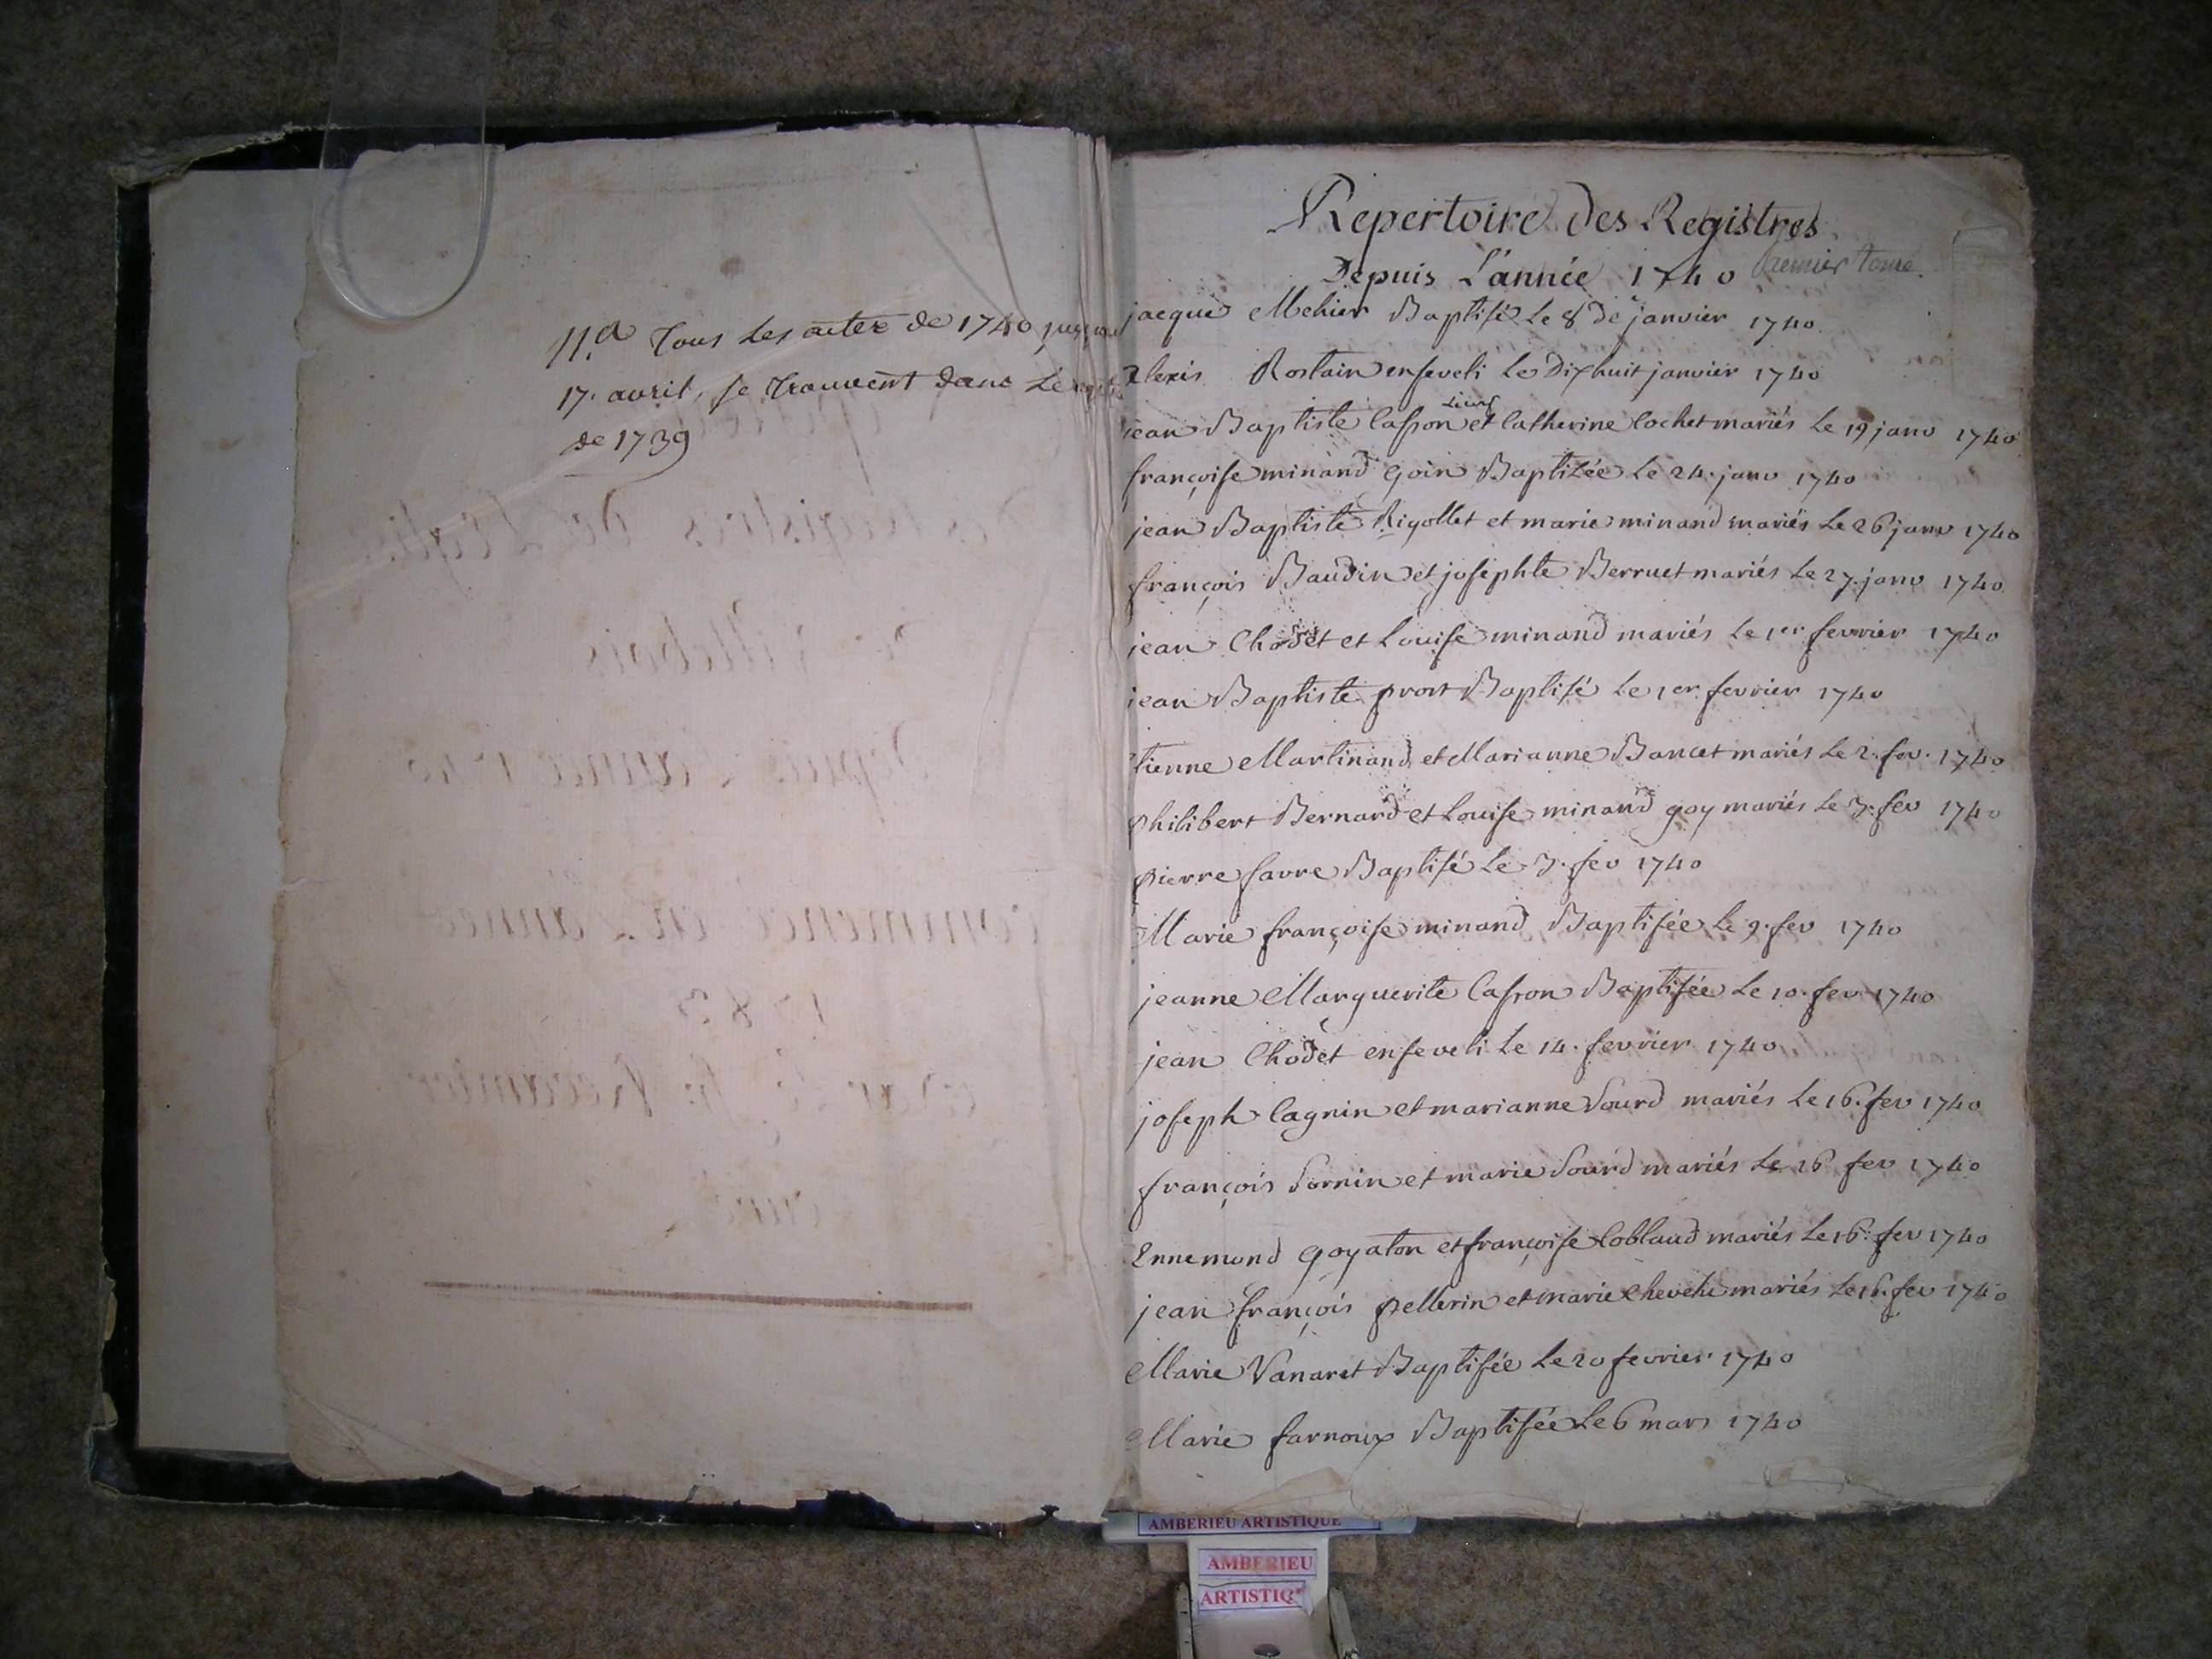 na Tous les actes de 1740 jusqu'au
17. avril, se trouvent dans le
de 1739
Repertoire des Registres
Depuis L'année 1740 Premier tome.
jacque Mehier Baptisé Le 8 de janvier 1740
Alexis Rostain enseveli Le dixhuit janvier 1740
jean Baptiste Casson et Catherine Cochet mariés Le 19 janv 1740
françoise minand goin Baptisée Le 24. janv 1740
jean Baptiste Rigollet et marie minand mariés Le 26 janv 1740
françois Baudin et josephte Berruet mariés Le 27. janv 1740
jean Chodet et Louise minand mariés Le 1er fevrier 1740
jean Baptiste prost Baptisé Le 1er. fevrier 1740
Etienne Martinand et Marianne Bancet mariés Le 2. fev. 1740
philibert Bernard et Louise minand goy mariés Le 3. fev 1740
pierre favre Baptisé Le 3. fev 1740
Marie françoise minand Baptisée Le 9. fev 1740
jeanne Marguerite Casson Baptisée Le 10. fev 1740
jean Chodet enseveli Le 14. fevrier 1740
joseph Cagnin et marianne Sourd mariés Le 16. fev 1740
françois Sornin et marie Sourd mariés Le 16 fev 1740
Ennemond goyaton et françoise Coblaud mariés Le 16. fev 1740
jean françois pellerin et marie mariés Le 16. fev 1740
Marie Vanaret Baptisée Le 20 fevrier 1740
Marie farnoux Baptisée Le 6 mars 1740
AMBERIEU ARTISTIQUE
AMBERIEU
ARTISTIQ